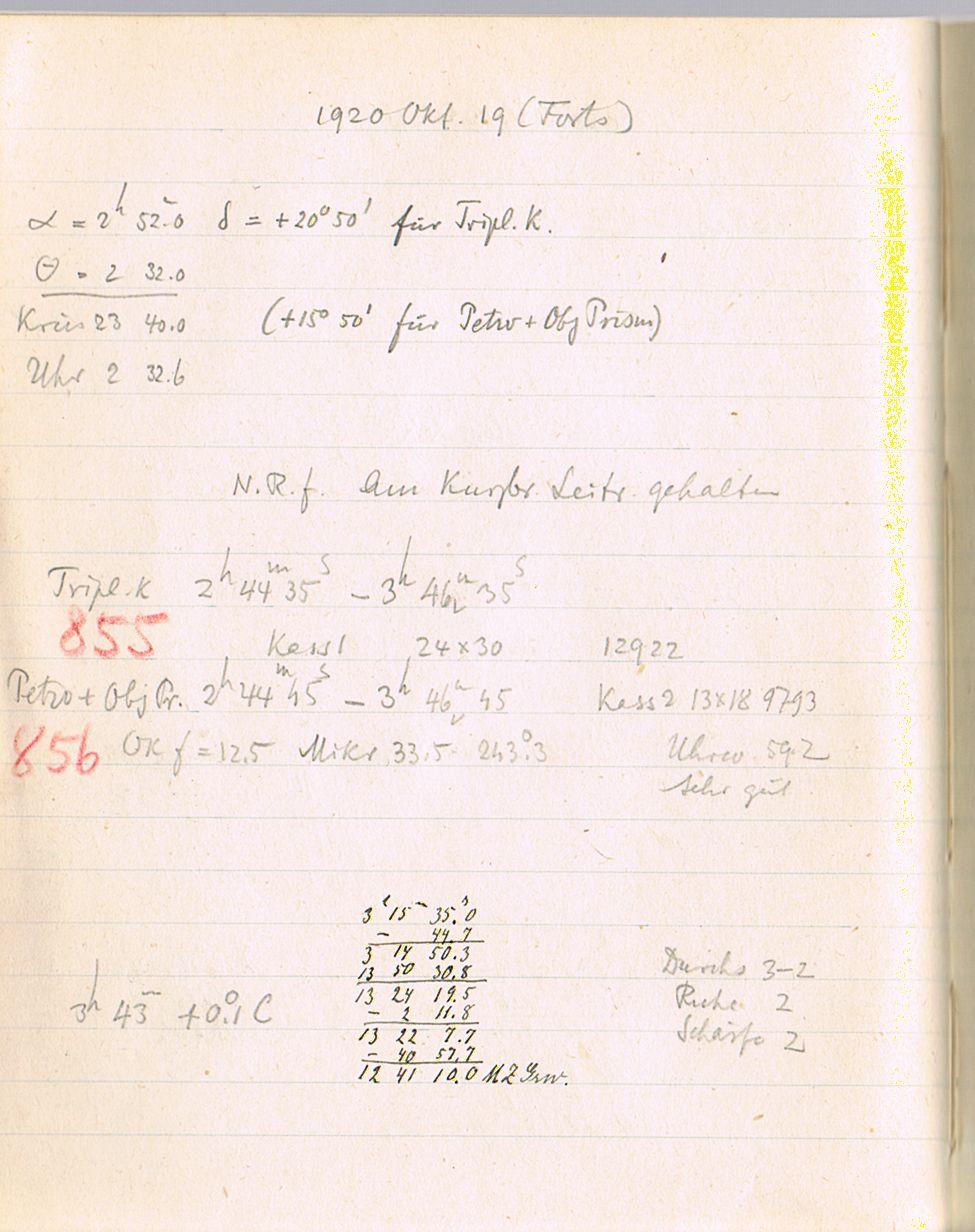 1920 Okt. 19 (Forts)
α = 2h 52m.0 δ = +20° 50' für Tripl. K.
Θ = 2 32.0
Kreis 23 40.0 (+15° 50' für Petzv + Obj Prism)
Uhr 2 32.6
N.R.f. Am Kurfbr. Leitr. gehalten
Tripl. K 2h 44m 35s – 3h 46m 35s
855 Kass 1 24×30 12922
Petzv + Obj Pr. 2h 44m 45s – 3h 46m 45 Kass 2 13×18 9793
856 OK f = 12.5 Mikr 33.5 243°.3 Uhrw. 59.2
Sehr gut
3h 15m 35s.0
– 44.7
3 14 50.3
13 50 30.8
13 24 19.5
– 2 11.8
13 22 7.7
– 40 57.7
12 41 10.0 MZ Grw.
3h 43m +0°.1 C
Durchs 3–2
Ruhe 2
Schärfe 2